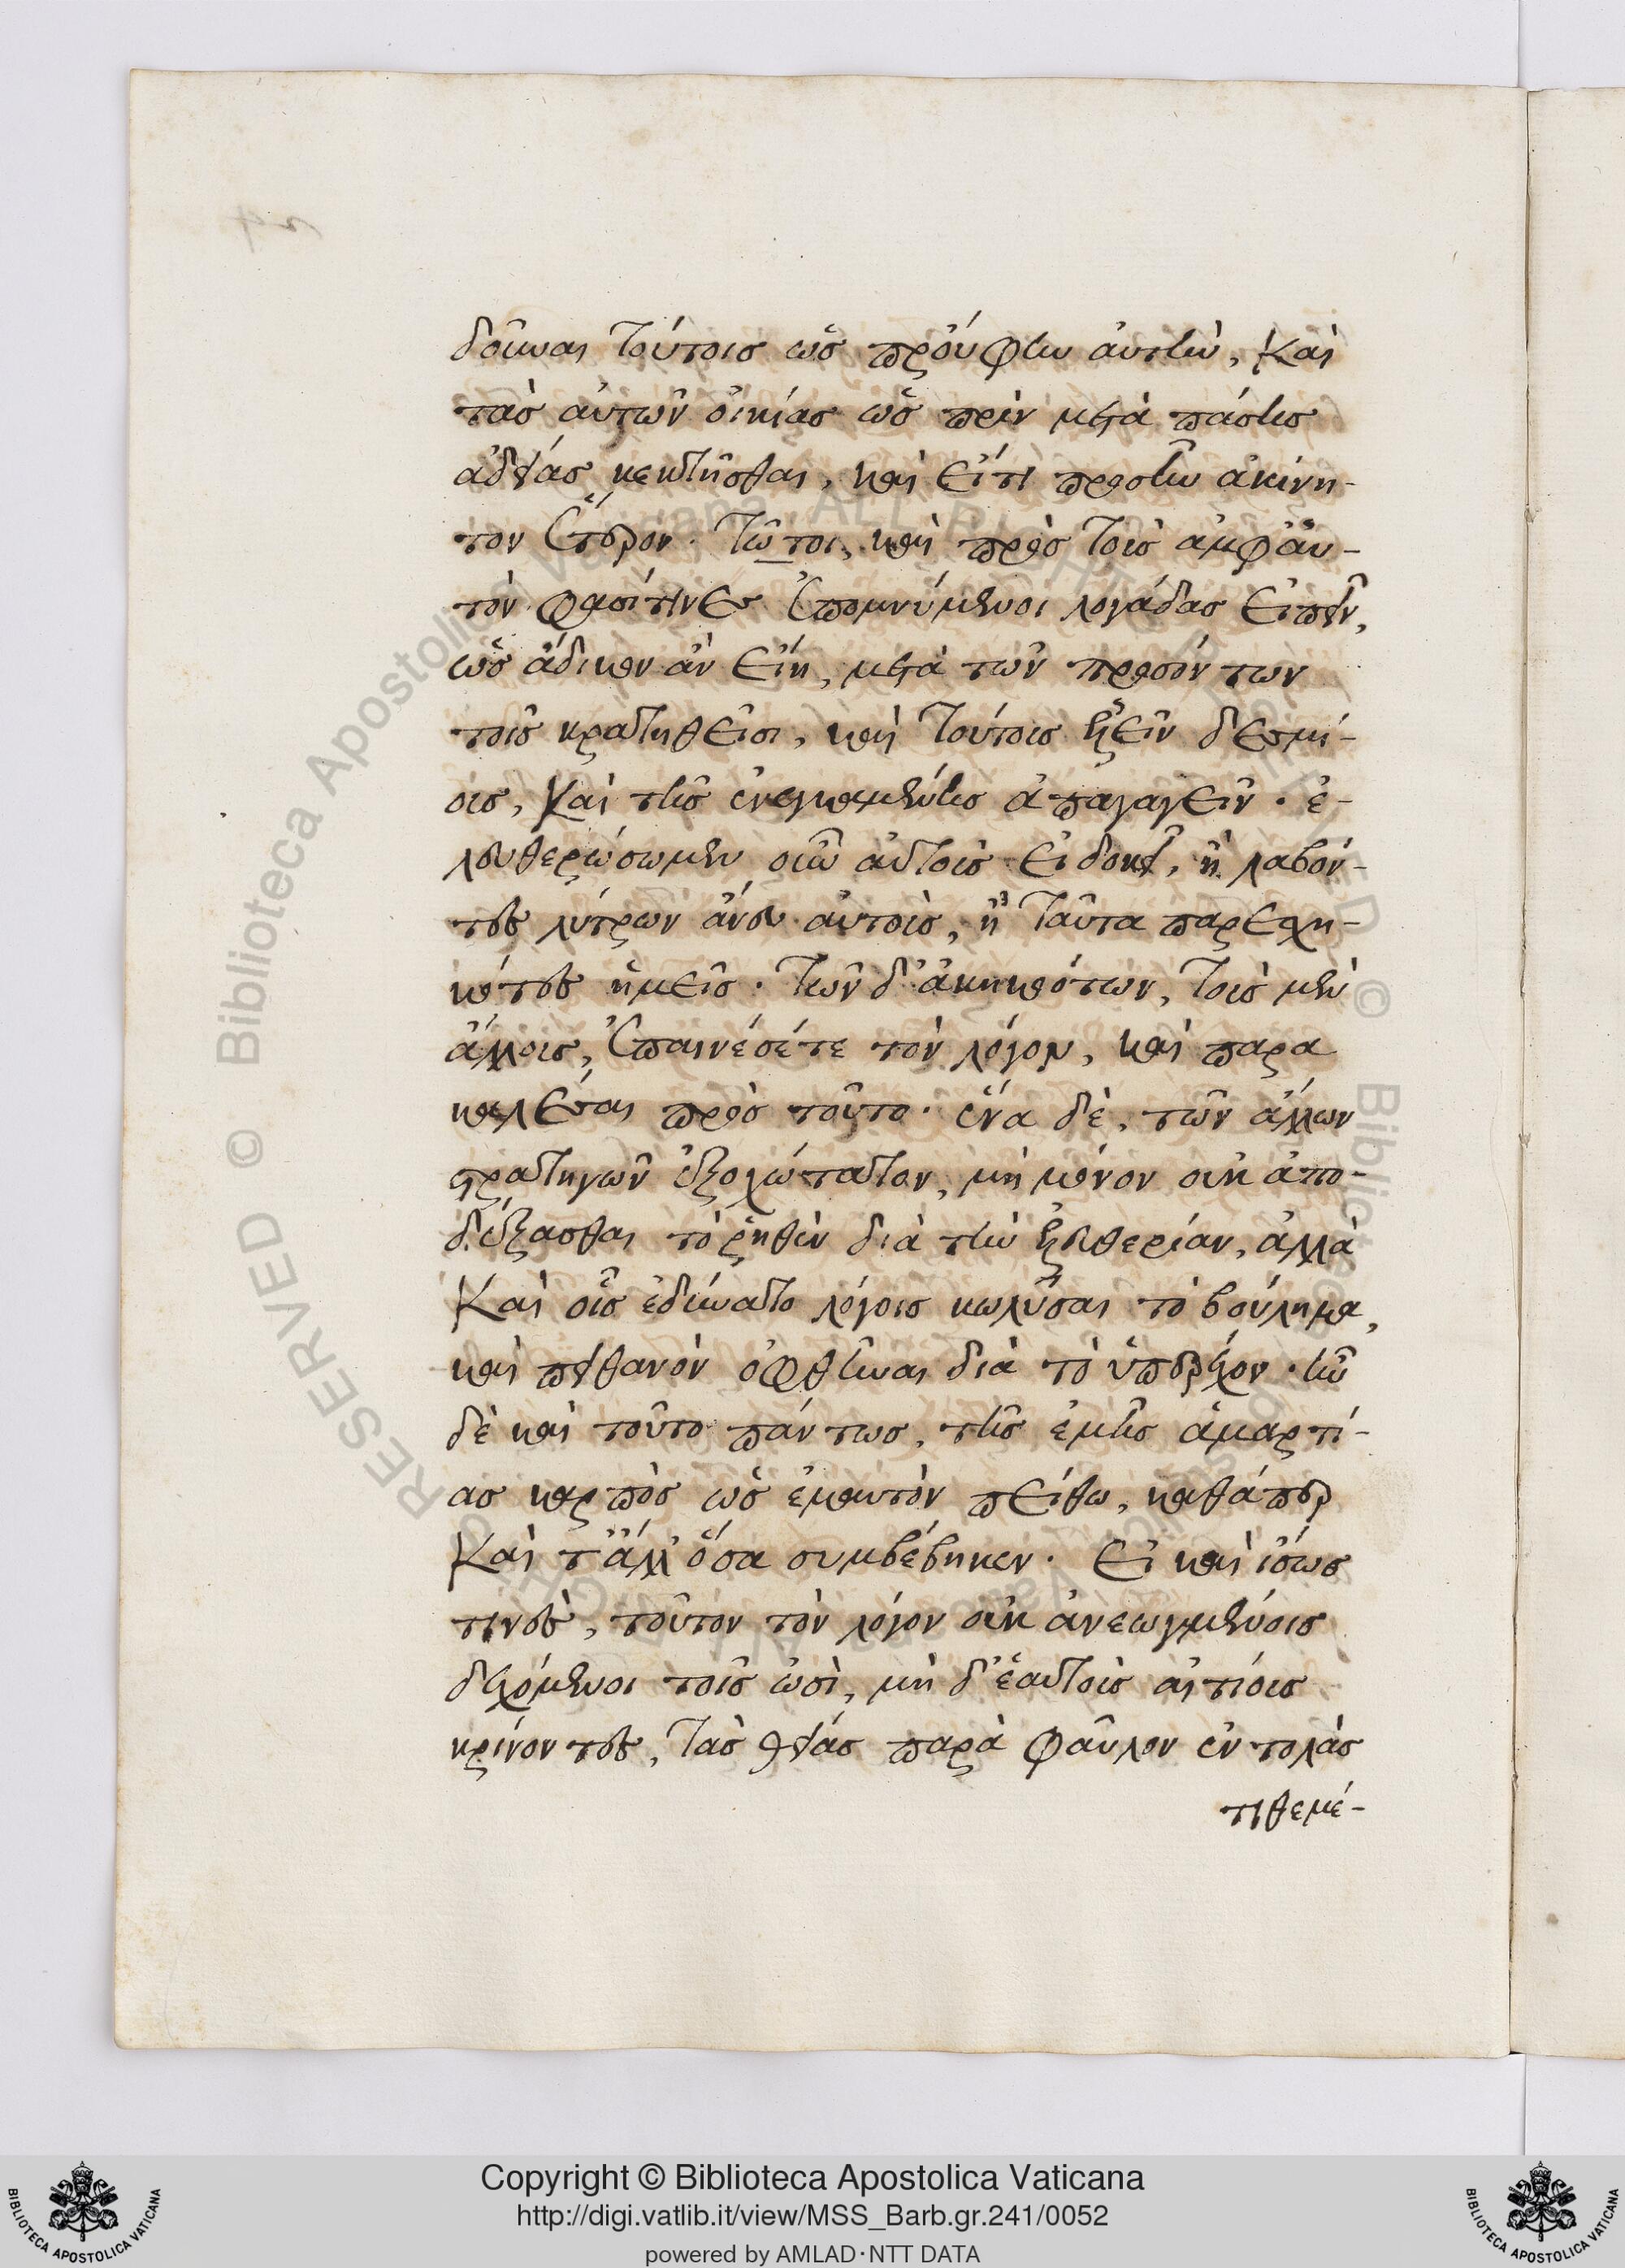 δοῦναι τούτοις ὡς προύφην αὐτὴν, καὶ
τὰς αὐτῶν οἰκίας ὡς πρὶν μετὰ πάσης
ἀδείας κεκτῆσθαι, καὶ εἴ τι προσῆν ἀκίνη-
τον ἕτερον. τῶ τοι, καὶ πρὸς τοὺς ἀμφ' αὐ-
τὸν φασί τινες ἑπομνύμενοι λογάδας εἰπεῖν,
ὡς ἄδικον ἂν εἴη, μετὰ τῶν προσόντων
τοῖς κρατηθεῖσι, καὶ τούτοις ἕξειν δεσμί-
οις, καὶ τῆς ἐνεγκαμένης ἀπαγαγεῖν. ἐ-
λευθερώσωμεν οὖν αὐτοὺς εἰ δοκεῖ, ἢ λαβόν-
τες λύτρων ἄνευ αὐτοὺς, ἢ ταῦτα παρεσχη-
κότες ἡμεῖς. τῶν δ' ἀκηκοότων, τοὺς μὲν
ἄλλοις, ἐπαινέσετε τὸν λόγον, καὶ παρα
καλέσαι πρὸς τοῦτο. ἕνα δὲ, τῶν ἄλλων
στρατηγῶν ἐξοχώτατον, μὴ μόνον οὐκ ἀπο-
δέξασθαι τὸ ῥηθὲν διὰ τὴν ἐλευθερίαν, ἀλλὰ
καὶ οἷς ἐδύνατο λόγοις κωλῦσαι τὸ βούλημα,
καὶ πειθανὸν ὀφθῆναι διὰ τὸ ὑπερέχον. ἦν
δὲ καὶ τοῦτο πάντως, τῆς ἐμῆς ἁμαρτί-
ας καρπὸς ὡς ἐμαυτὸν πείθω, καθάπερ
καὶ τἄλλ' ὅσα συμβέβηκεν. εἰ καὶ ἴσως
τινὲς, τοῦτον τὸν λόγον οὐκ ἀνεωγμένοις
δεχόμενοι τοῖς ὠσὶ, μὴ δ' ἑαυτοὺς αἰτίοις
κρίνοντες, τὰς θείας παρὰ φαῦλον ἐντολὰς
τιθεμέ-
Copyright © Biblioteca Apostolica Vaticana
http://digi.vatlib.it/view/MSS_Barb.gr.241/0052
powered by AMLAD·NTT DATA